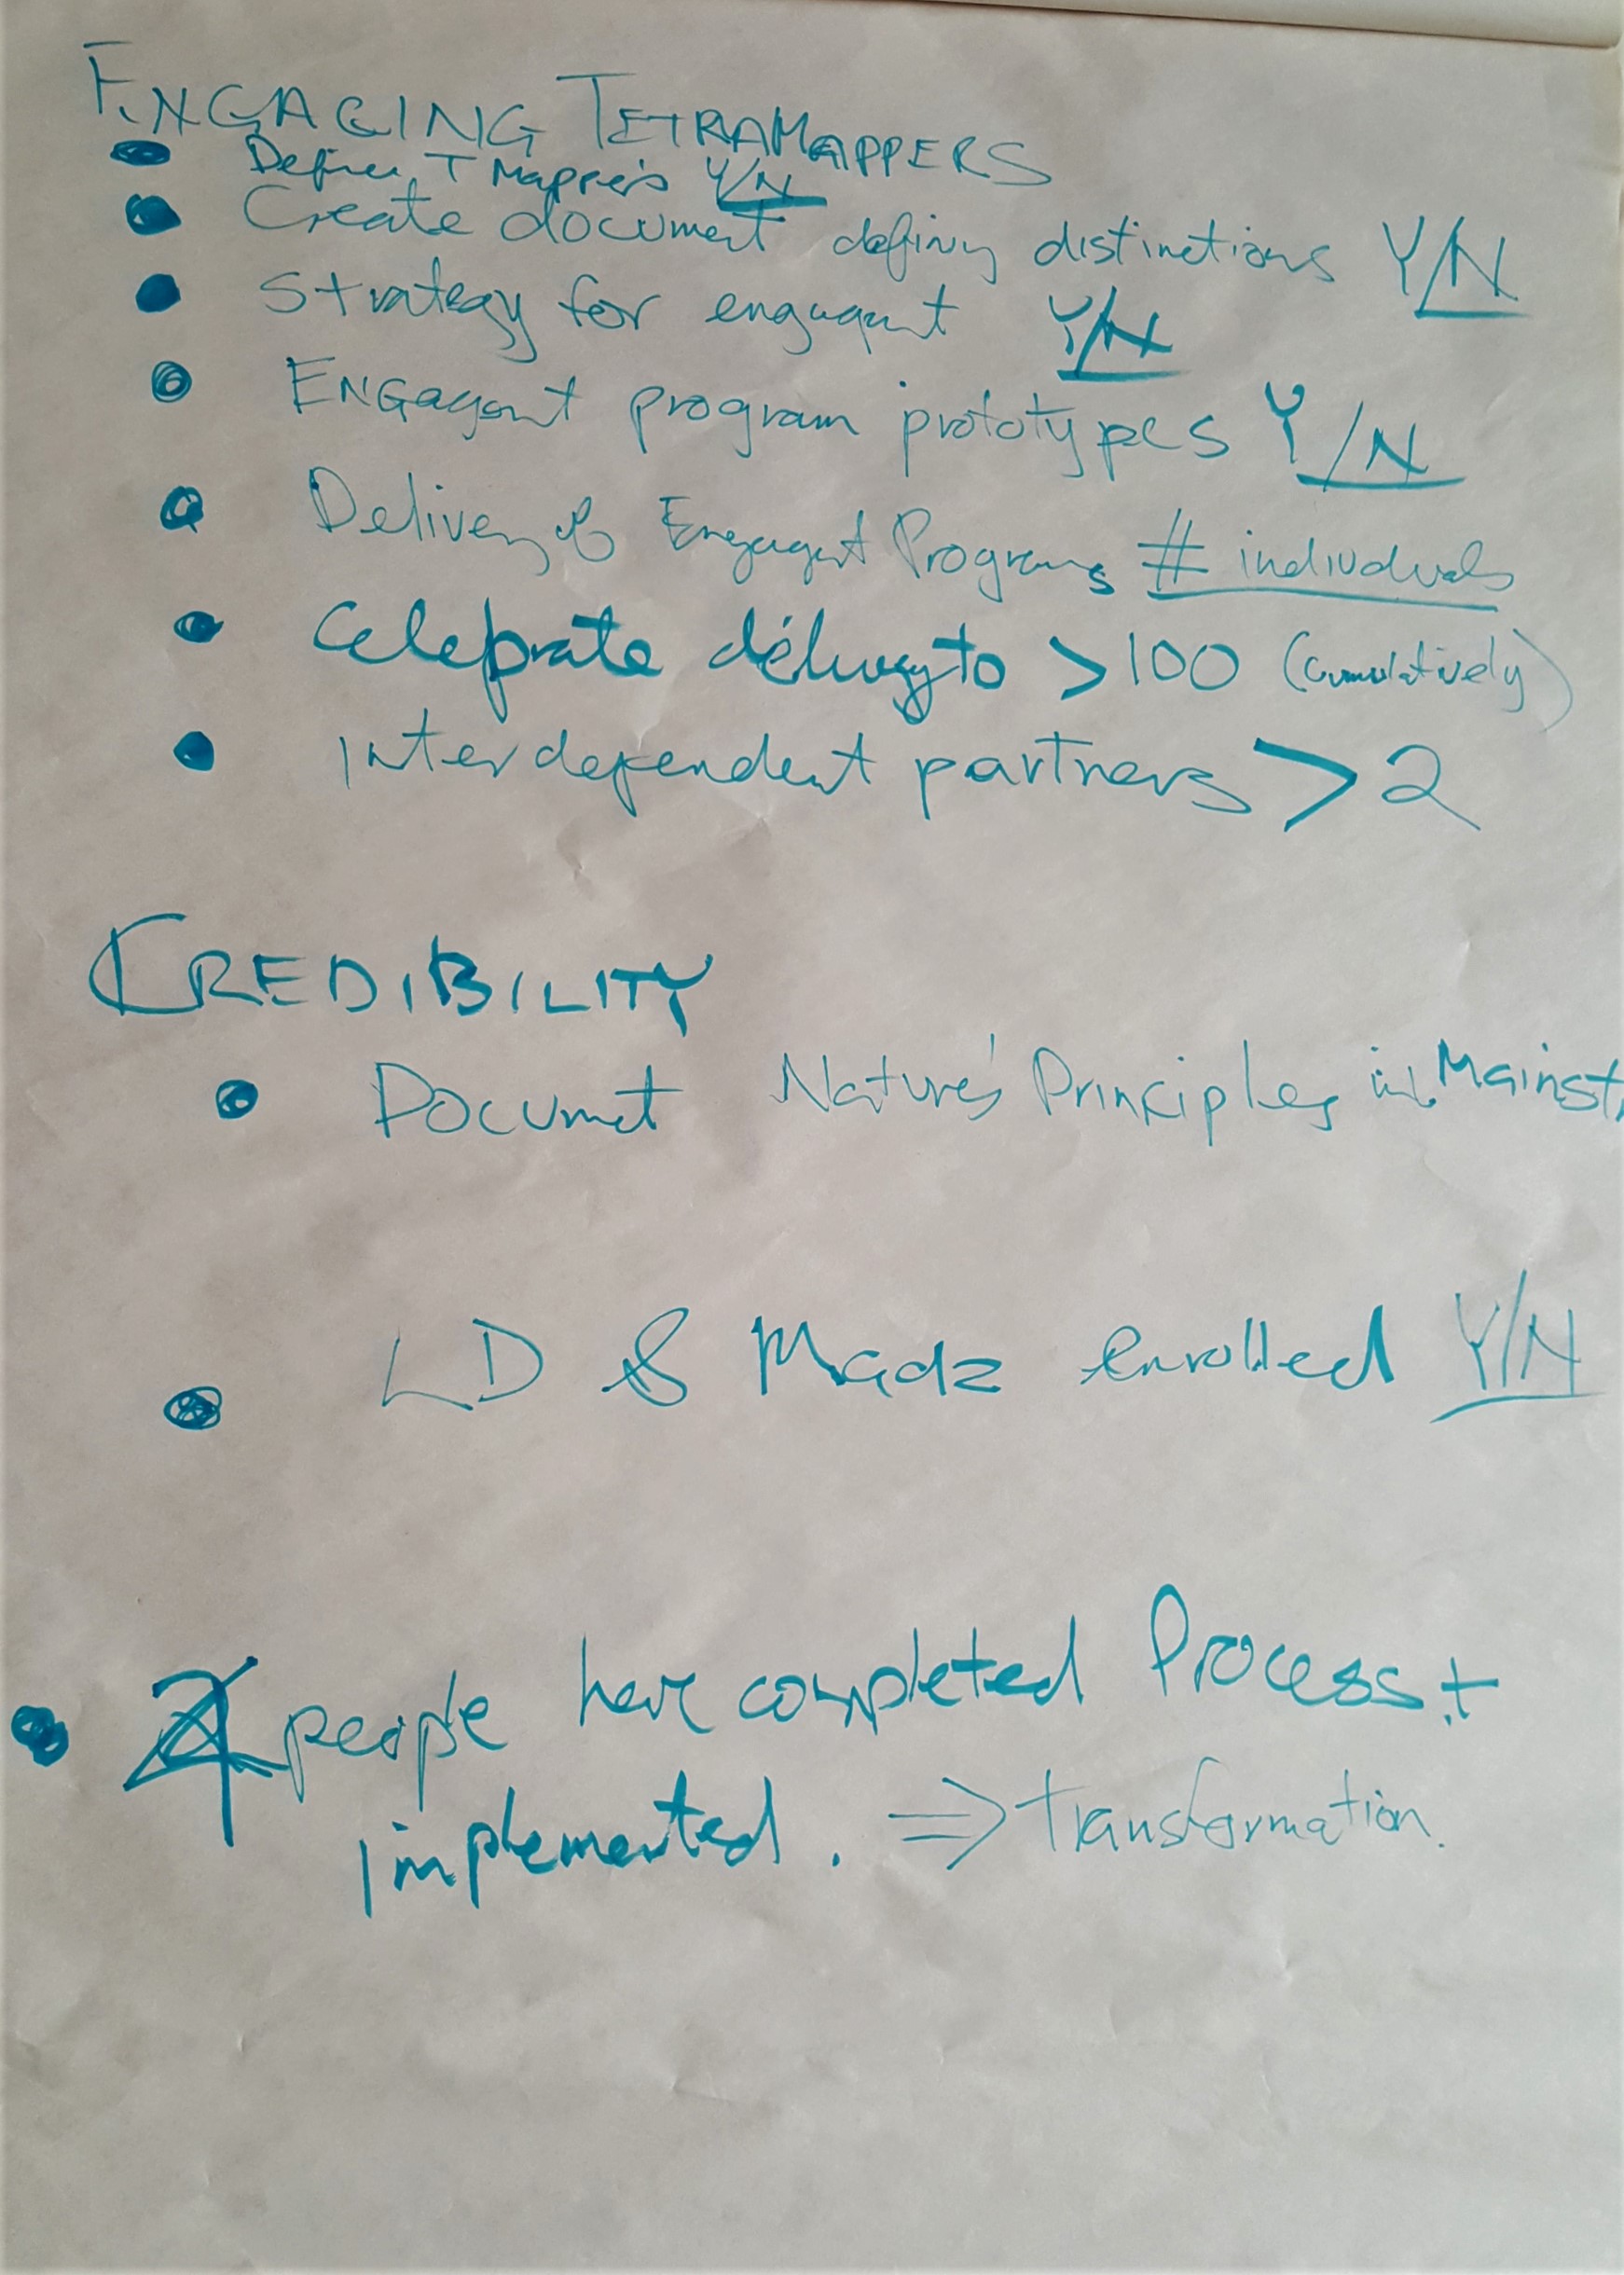 ENGAGING TETRAMAPPERS
• Define T Mappers Y/N
• Create document defining distinctions Y/N
• Strategy for engagement Y/N
• Engagement program prototypes Y/N
• Delivery of Engagement Programs # individuals
• Celebrate delivery to >100 (cumulatively)
• Interdependent partners >2
CREDIBILITY
• Document Nature's Principles in Mainst
• LD & Madz enrolled Y/N
• people have completed Process +
implemented. ⇒ transformation.